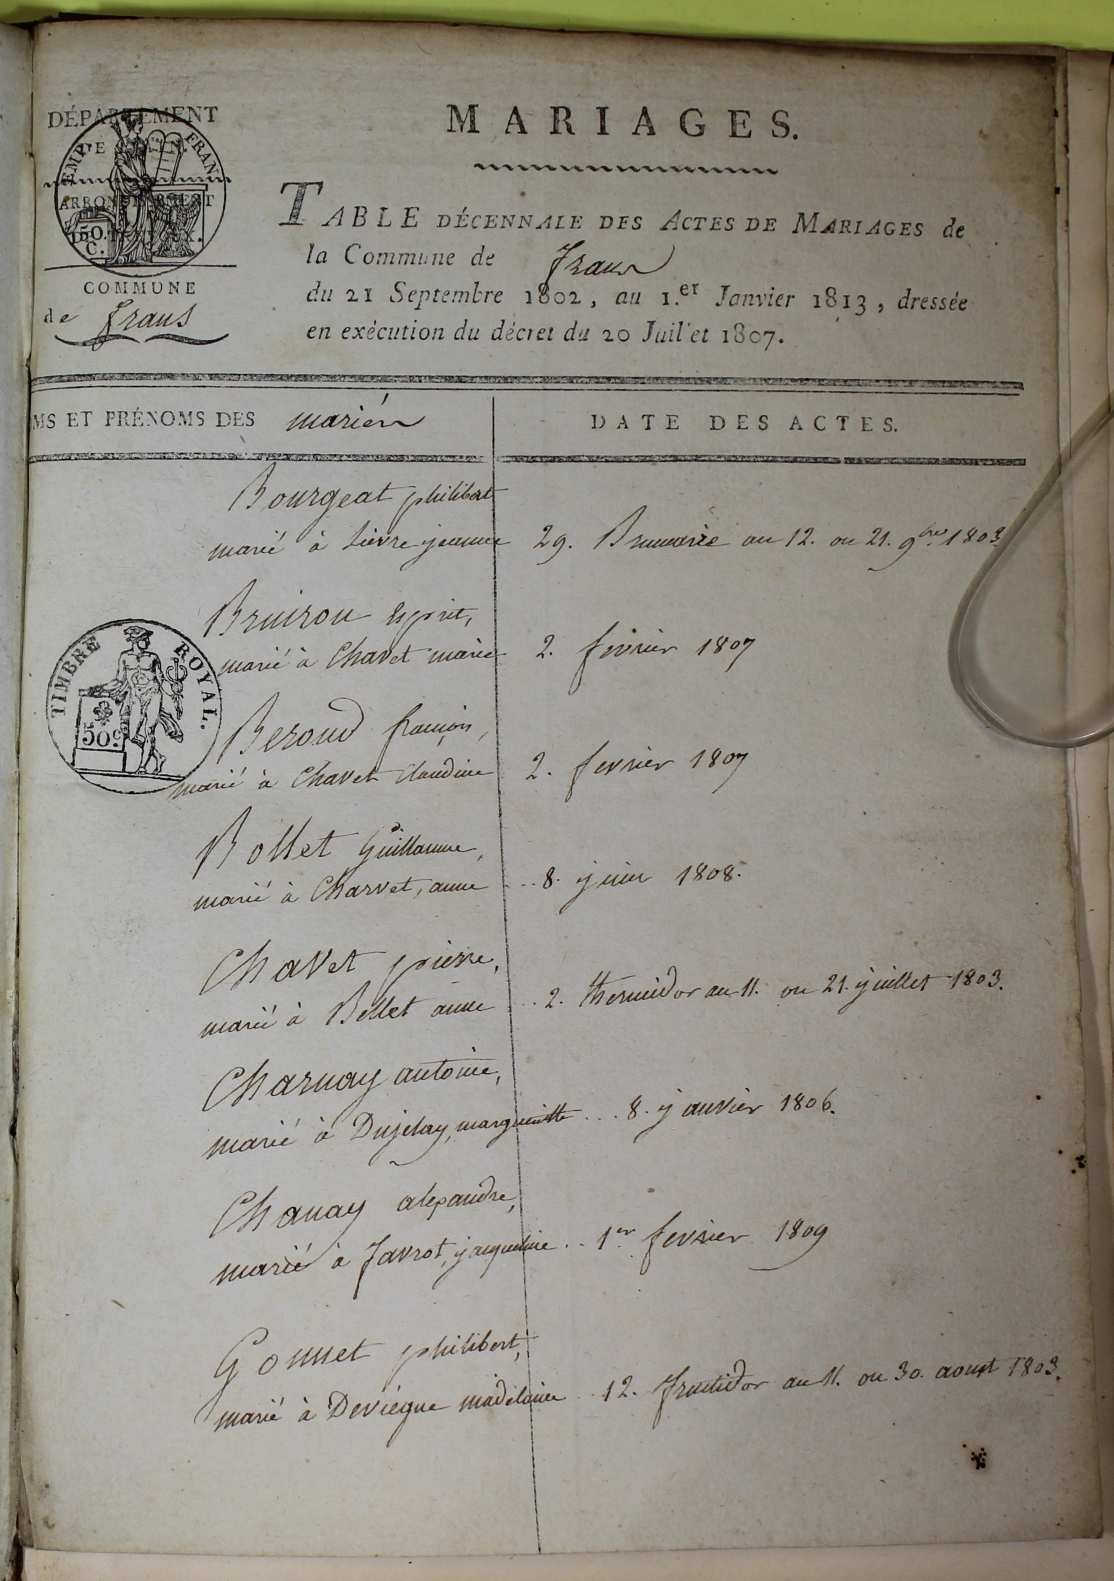 DÉPARTEMENT
DE L'AIN.
ARRONDISSEMENT
EMP. FRAN.
50.
C.
COMMUNE
de frans
MARIAGES.
TABLE DÉCENNALE DES ACTES DE MARIAGES de
la Commune de frans
du 21 Septembre 1802, au 1.er Janvier 1813, dressée
en exécution du décret du 20 Juillet 1807.
MS ET PRÉNOMS DES mariés
DATE DES ACTES.
Bourgeat philibert
marié à Lievre jeanne 29. Brumaire an 12. ou 21. 9bre 1803
Bruirou Esprit,
marié à Chavet marie 2. février 1807
TIMBRE ROYAL.
50c.
Beroud françois,
marié à Chavet Claudine 2. fevrier 1807
Bollet Guillaume,
marié à Charvet, anne .. 8. juin 1808.
Chavet pierre,
marié à Bollet anne .. 2. thermidor an 11. ou 21. juillet 1803.
Charnay antoine,
marié à Dujelay, margueritte ... 8. janvier 1806.
Chanay alexandre,
marié à Javrot, jacqueline .. 1er fevrier 1809
Gonnet philibert,
marié à Deviégue madelaine .. 12. fructidor an 11. ou 30. aoust 1803.